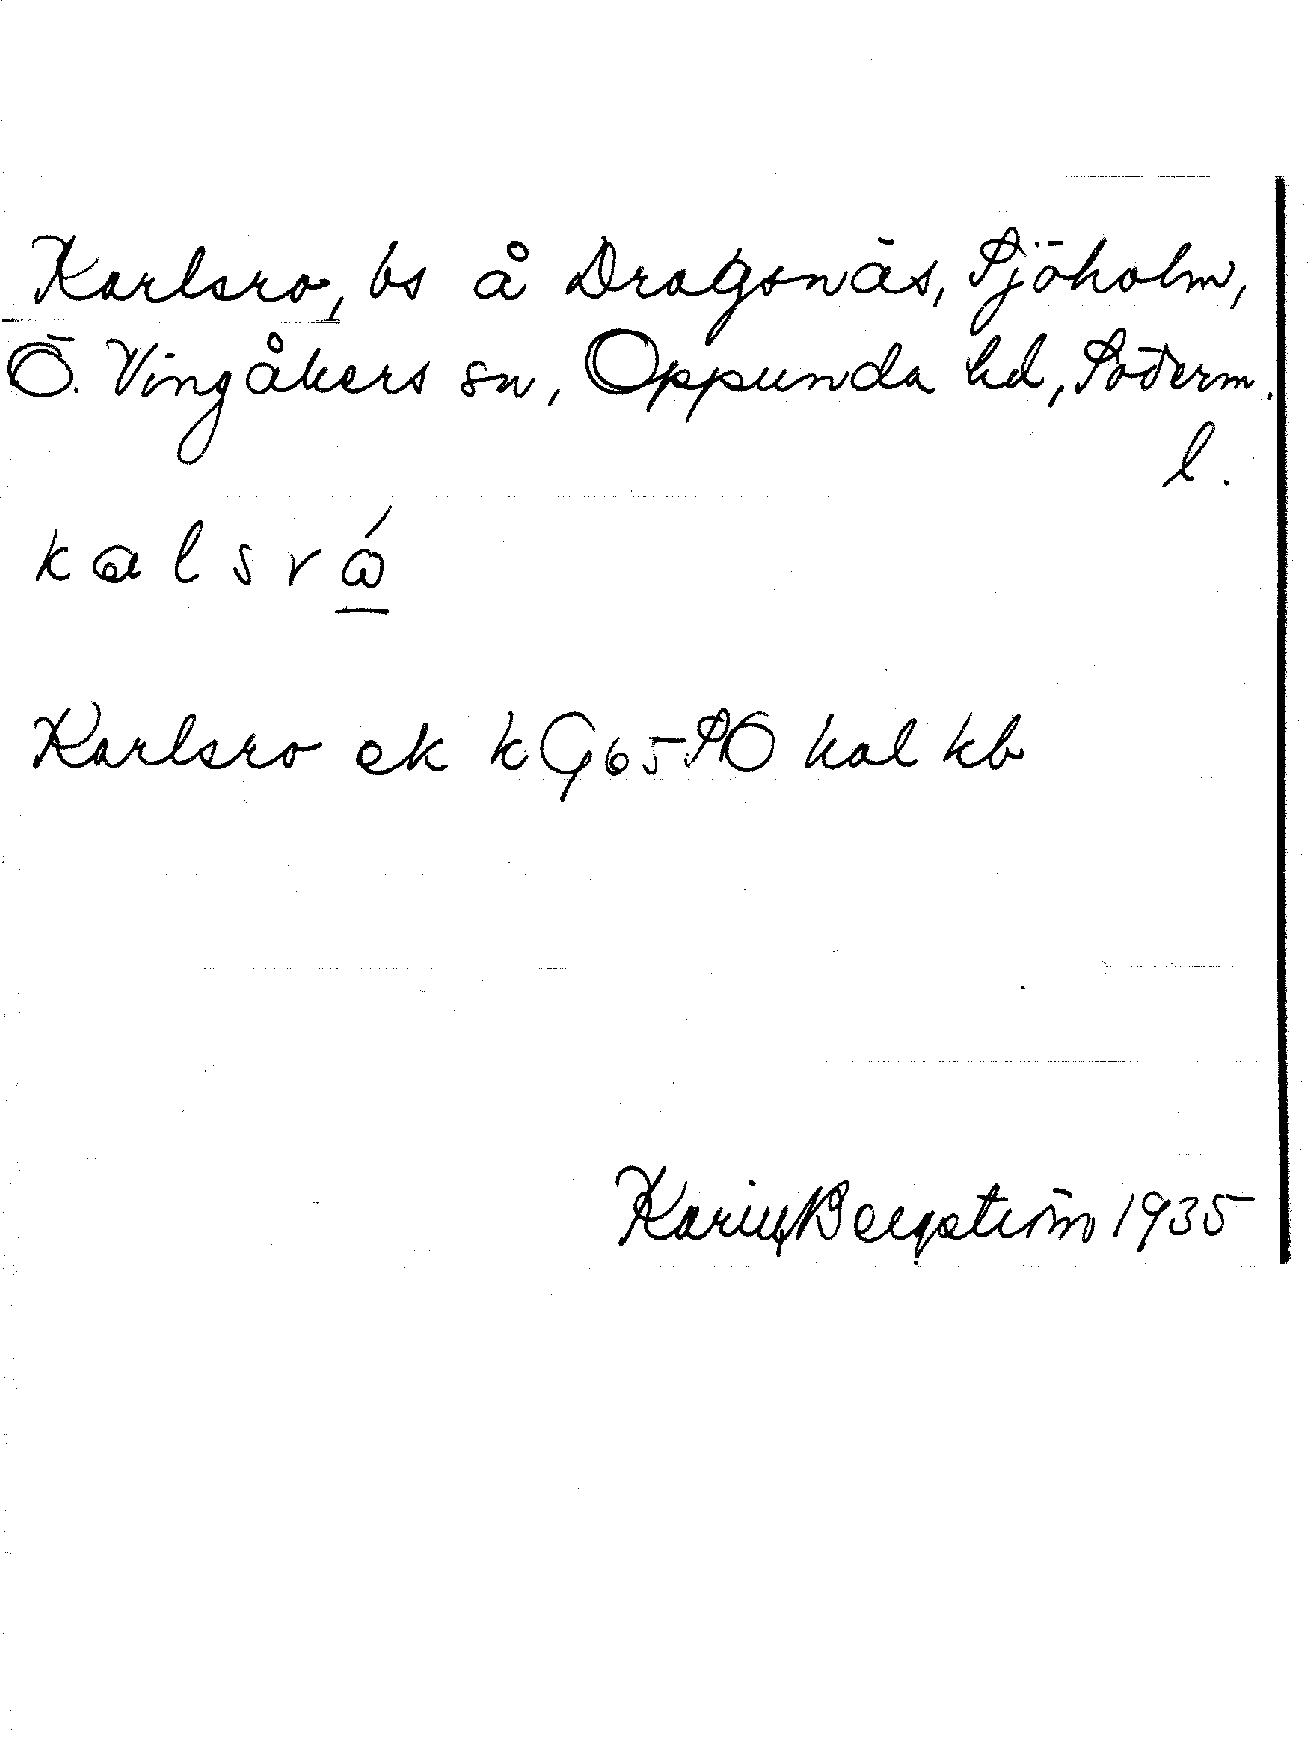 Karlsro, bs å Dragsnäs, Sjöholm,
Ö. Vingåkers sn, Oppunda hd, Söderm.
l.
kalsrώ
Karlsro ek kG65SO kal kb
Karin Bergström 1935